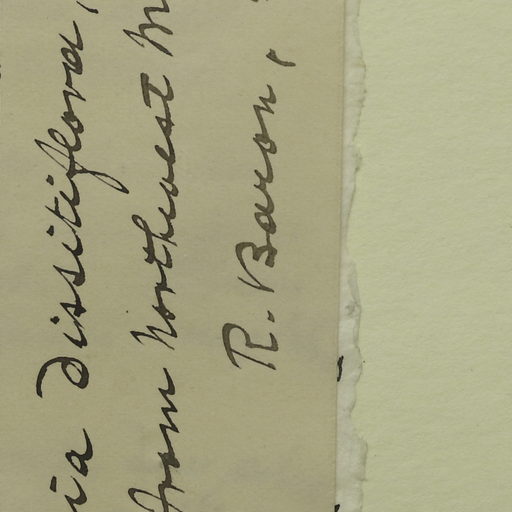 ia Dissitiflora,
from Northwest M
R. Baron,